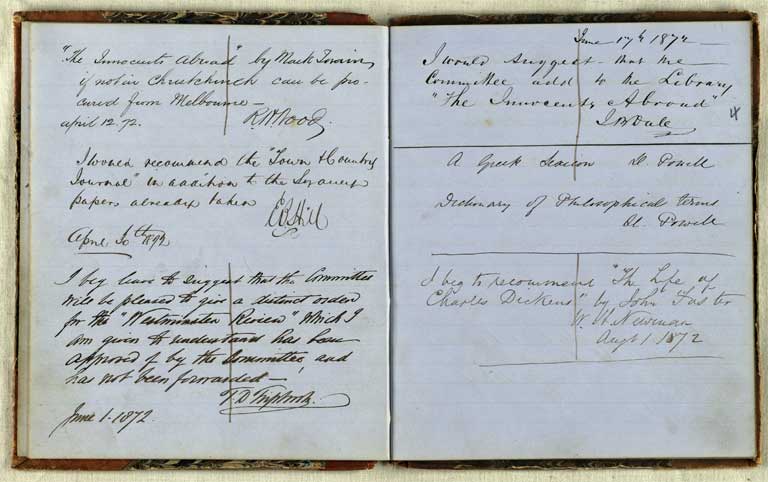 "The Innocents Abroad" by Mark Twain,
if not in Christchurch can be pro-
cured from Melbourne —
april 12. 72.
I would recommend the "Town & Country
Journal" in addition to the
papers already taken
E Hill
April 30th 1872
I beg leave to suggest that the Committee
will be pleased to give a distinct order
for the "Westminster Review" which I
am given to understand has been
approved of by the Committee, and
has not been forwarded —
June 1 - 1872.
June 17th 1872 —
I would suggest that the
Committee add to the Library
"The Innocents Abroad"
Dale
A Greek Lexicon Powell
Dictionary of Philosophical terms
Powell
I beg to recommend "The Life of
Charles Dickens" by John Foster
W. Newman
Augt 1 1872